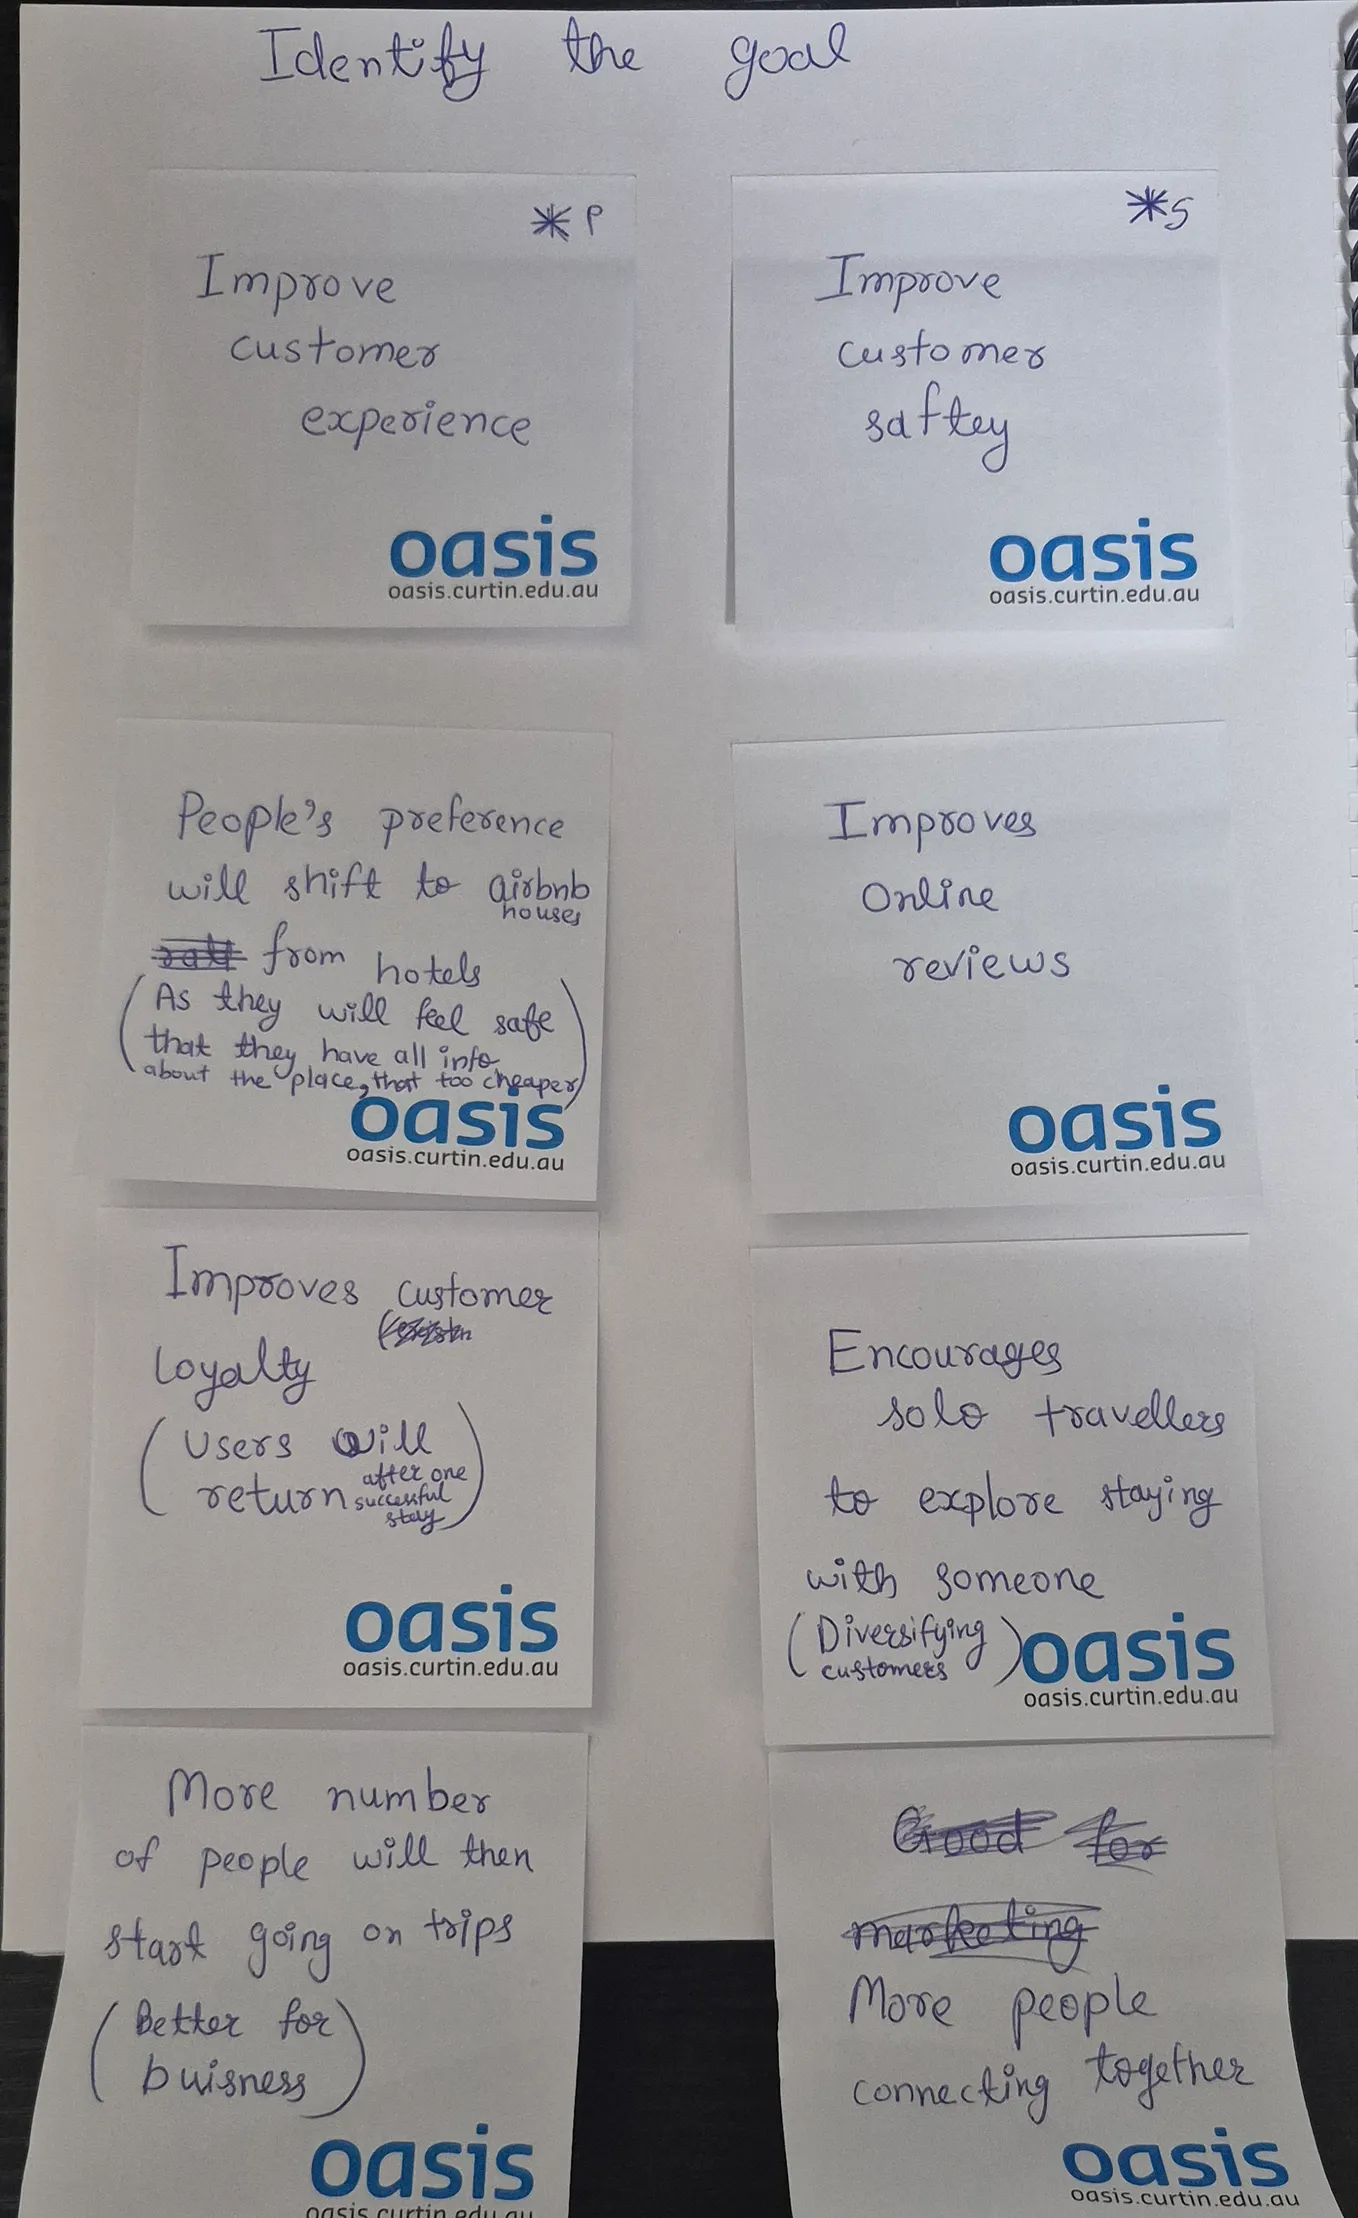 Identify the goal
* P
Improve
customer
experience
oasis
oasis.curtin.edu.au
* S
Improve
customer
saftey
oasis
oasis.curtin.edu.au
People's preference
will shift to airbnb
houses
from hotels
(As they will feel safe
that they have all info
about the place, that too cheaper)
oasis
oasis.curtin.edu.au
Improves
Online
reviews
oasis
oasis.curtin.edu.au
Improves customer
Loyalty
(Users will
return after one
successful
stay)
oasis
oasis.curtin.edu.au
Encourages
solo travellers
to explore staying
with someone
(Diversifying
customers)
oasis
oasis.curtin.edu.au
More number
of people will then
start going on trips
(Better for
buisness)
oasis
oasis.curtin.edu.au
Good for
marketing
More people
connecting together
oasis
oasis.curtin.edu.au